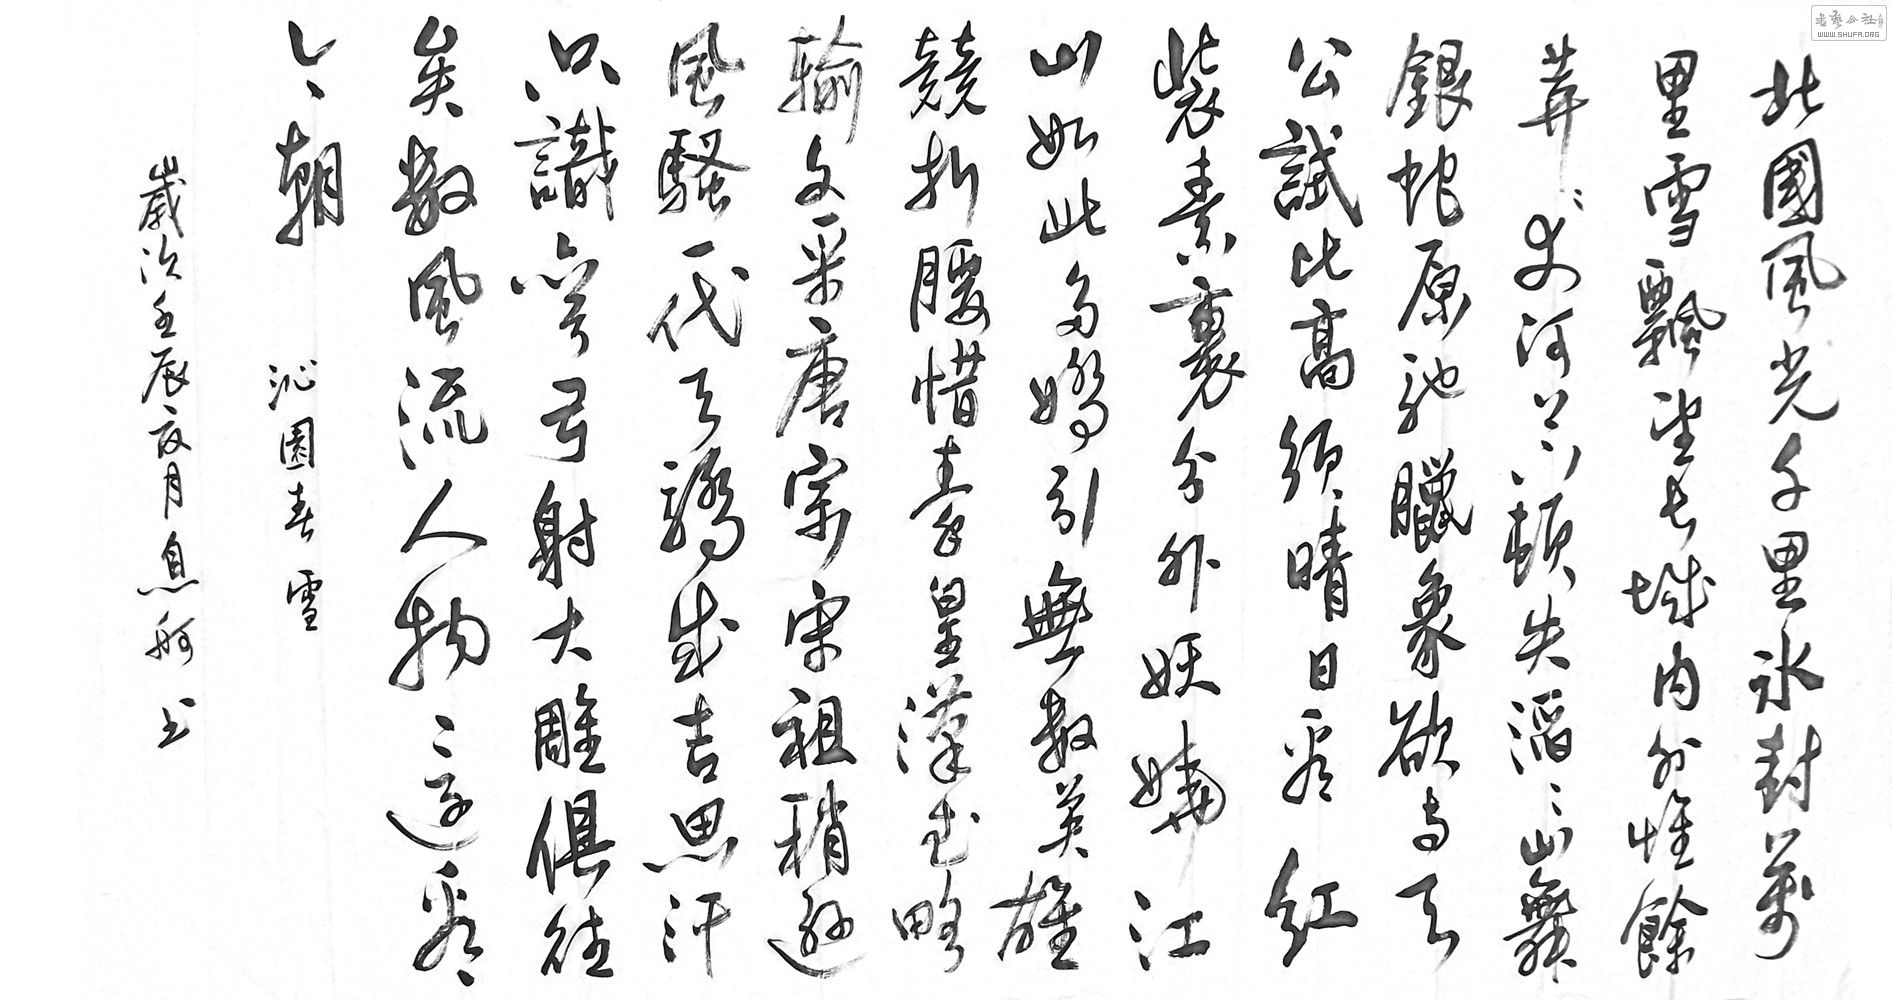 北國風光千里氷封萬
里雪飄望長城內外惟餘
莽〻大河上下頓失滔〻山舞
銀蛇原馳臘象欲與天
公試比高須晴日看紅
裝素裹分外妖嬈江
山如此多嬌引無數英雄
競折腰惜秦皇漢武略
輸文采唐宗宋祖稍遜
風騷一代天驕成吉思汗
只識彎弓射大雕俱往
矣數風流人物〻還看
今朝 沁園春 雪
歲次壬辰夜月息舸书
书艺公社
WWW.SHUFA.ORG